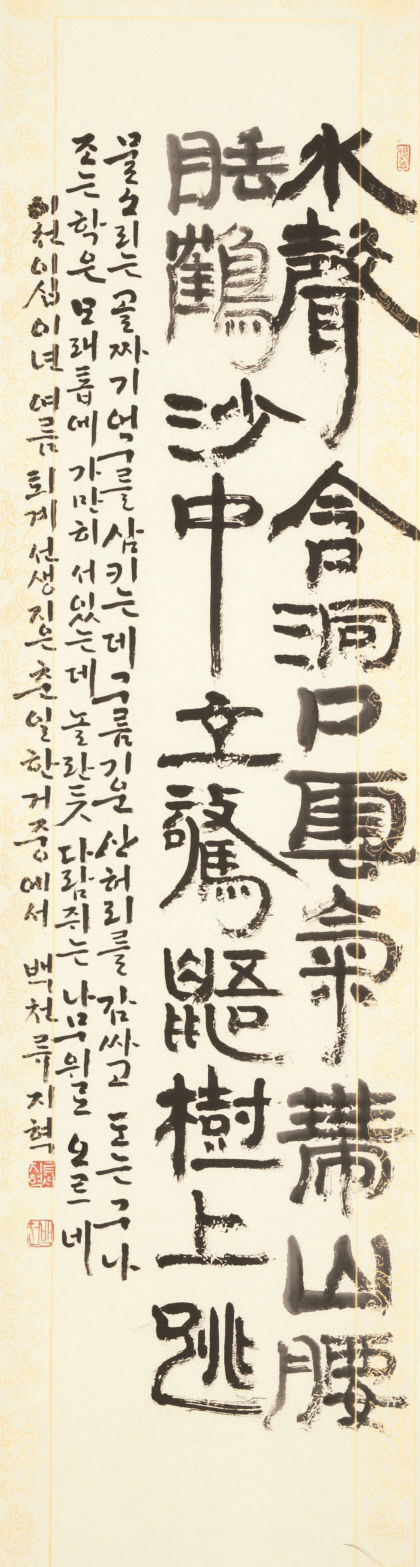 水聲含洞口雲氣帶山腰
睡鶴沙中立驚鼯樹上跳
물소리는 골짜기 어구를 삼키는데 구름기운 산허리를 감싸고 도는구나
조는 학은 모래톱에 가만히 서있는데 놀란듯 다람쥐는 나무위를 오르네
이천이십이년 여름 퇴계선생 지은 춘일한거중에서 백천 류지혁